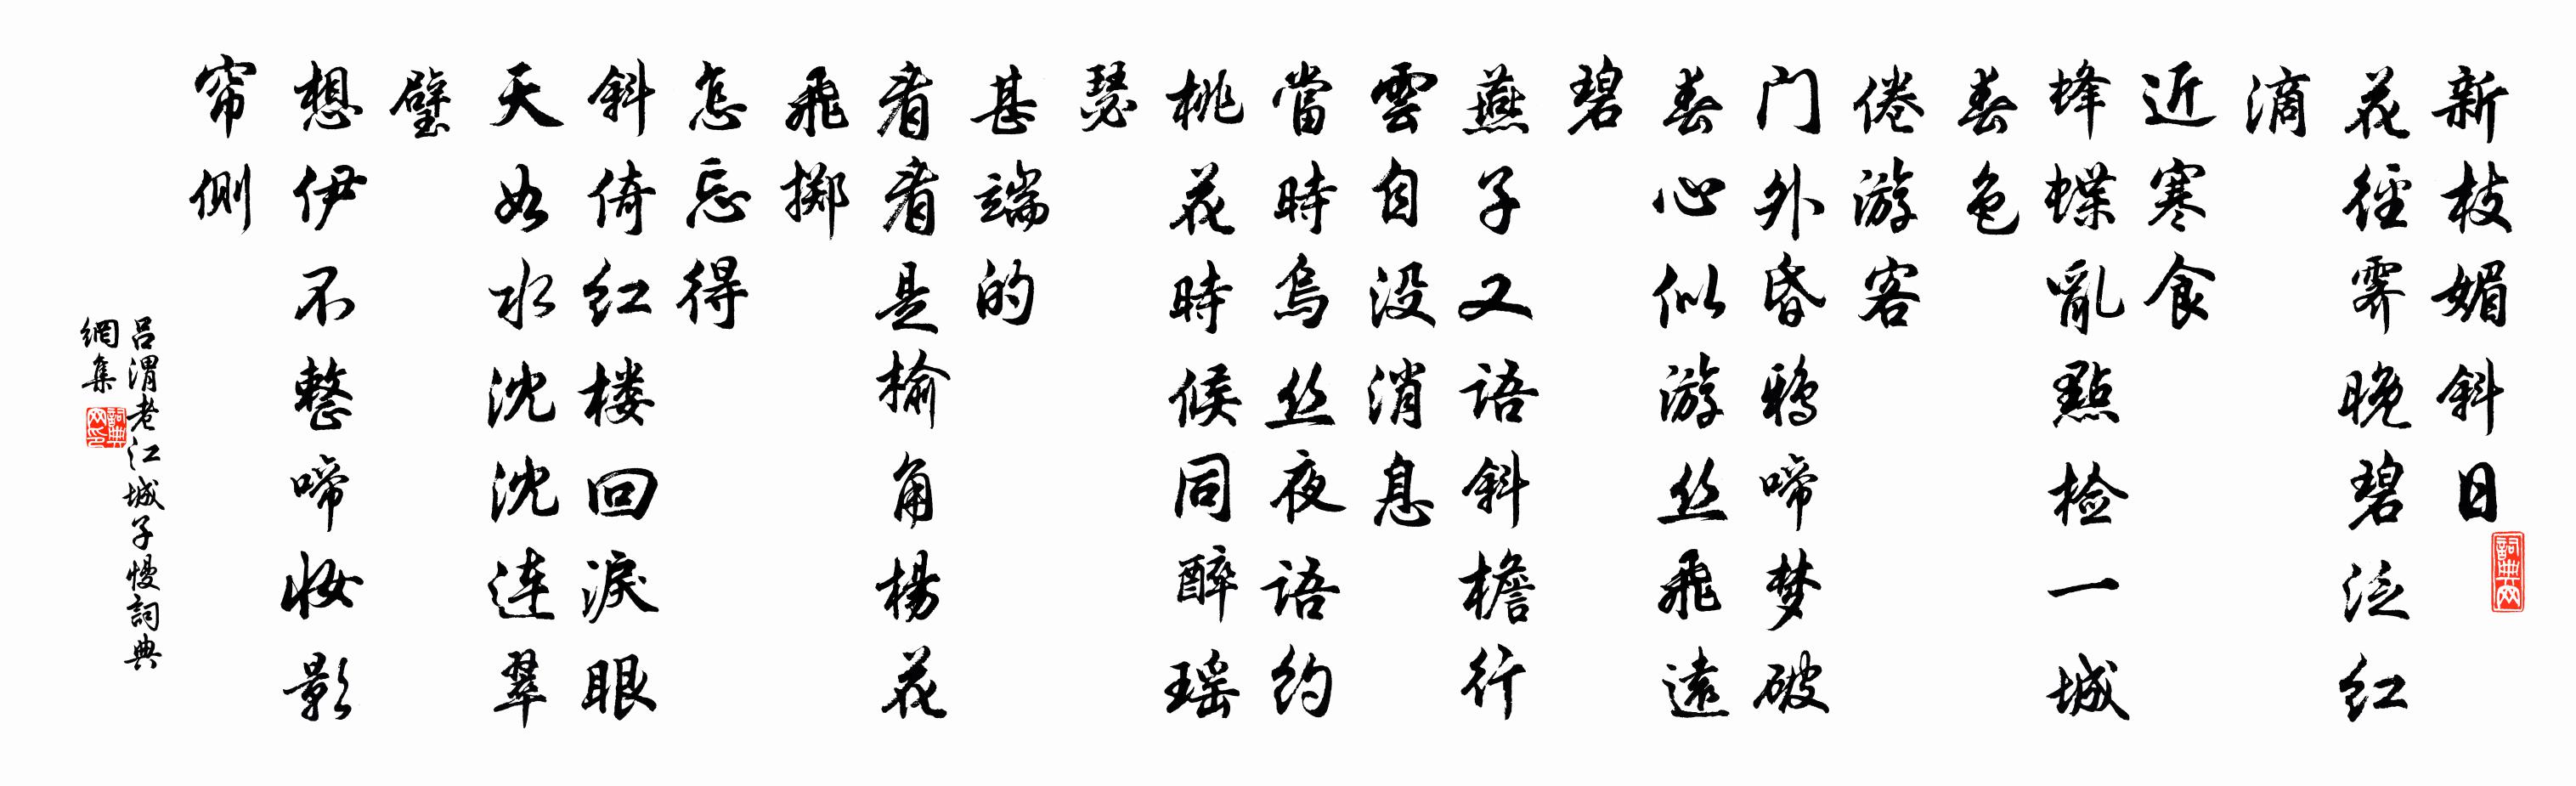 新枝媚斜日
花径霁晚碧泛红
滴
近寒食
蜂蝶亂點检一城
春色
倦游客
门外昏鸦啼梦破
春心似游丝飛遠
碧
燕子又语斜檐行
雲自没消息
當時烏丝夜语约
桃花時候同醉瑶
瑟
甚端的
看看是榆角楊花
飛掷
怎忘得
斜倚红楼回淚眼
天如水沈沈连翠
璧
想伊不整啼妆影
帘側
吕渭老江城子慢詞典
網集
詞典网
詞典网印